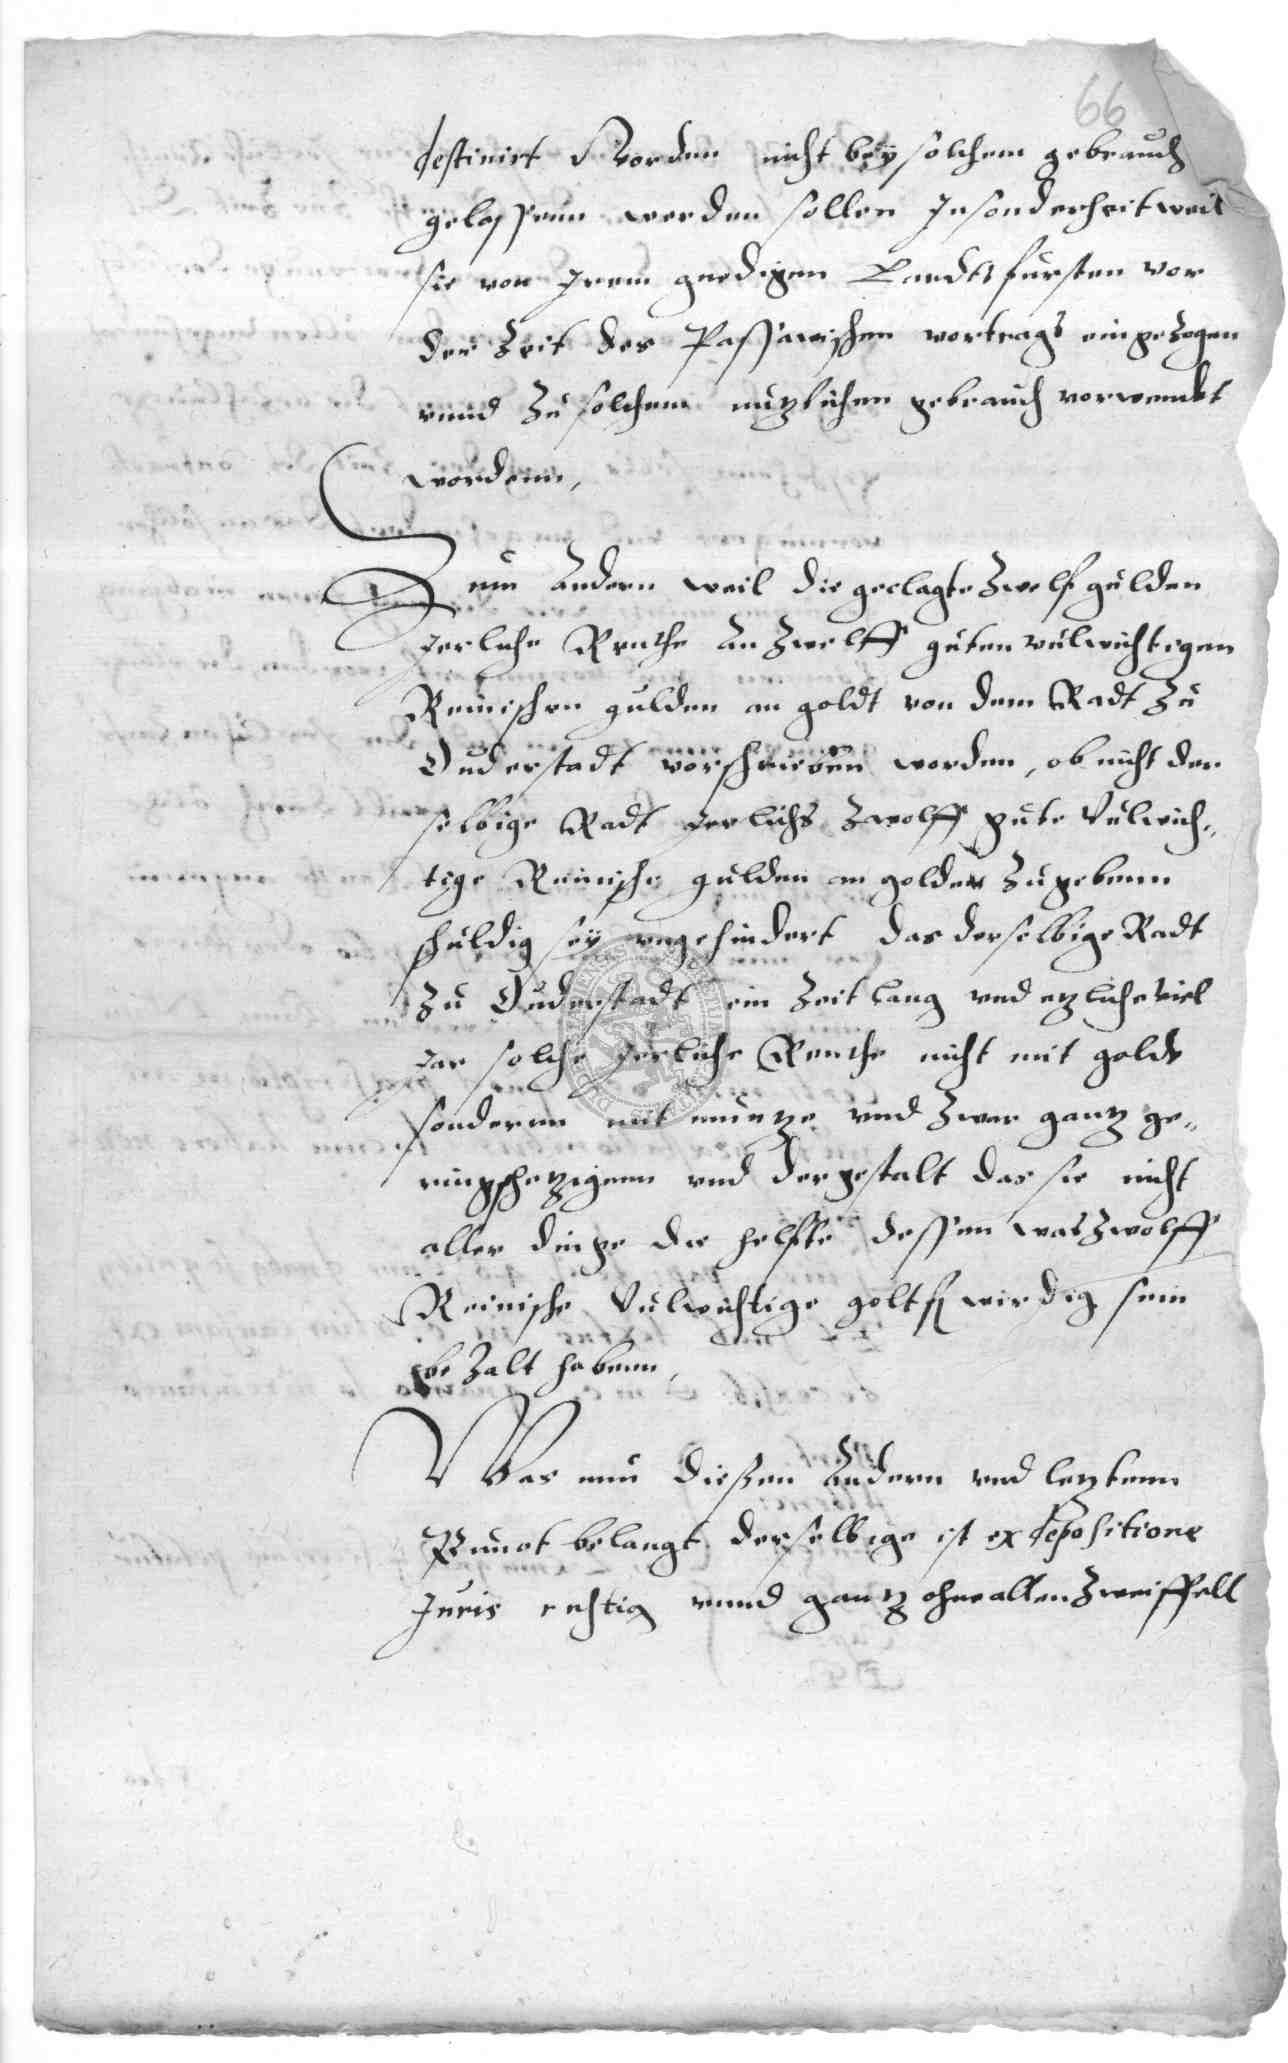 66
destinirt worden nicht bey solchem gebrauch
gelassenn werden sollen Insonderheit weil
sie von Irem gnedigen Landtsfursten vor
der Zeit des Passawischen vortrags eingezogen
vnnd zu solchem nutzlichen gebrauch vorwendt
wordenn,
Zum Andern weil die geclagte Zwelf gulden
Jerliche Renthe an Zwelff guten vulwichtigen
Reinischen gulden an goldt von dem Radt zu
Duderstadt vorschriebenn worden, ob nicht der
selbige Radt Jerlichs Zwolff gute Vulwich„
tige Reinische gulden an golde zugebenn
schuldig sey vngehindert das derselbige Radt
zu Duderstadt ein Zeit lang vnd etzliche viel
Jar solche Jerliche Renthe nicht mit golde
sonderen mit muntze vnd zwar gantz ge„
ringschetzigenn vnd der gestalt das sie nicht
aller dinge die helffte dessen was Zwolff
Reinische Vulwichtige goltfl wirdig sein
bezalt habenn,
Was nun diesen Andern vnd letztenn
Punct belangt derselbige ist ex depositione
Juris richtig vnnd gantz ohne allen Zweiffell